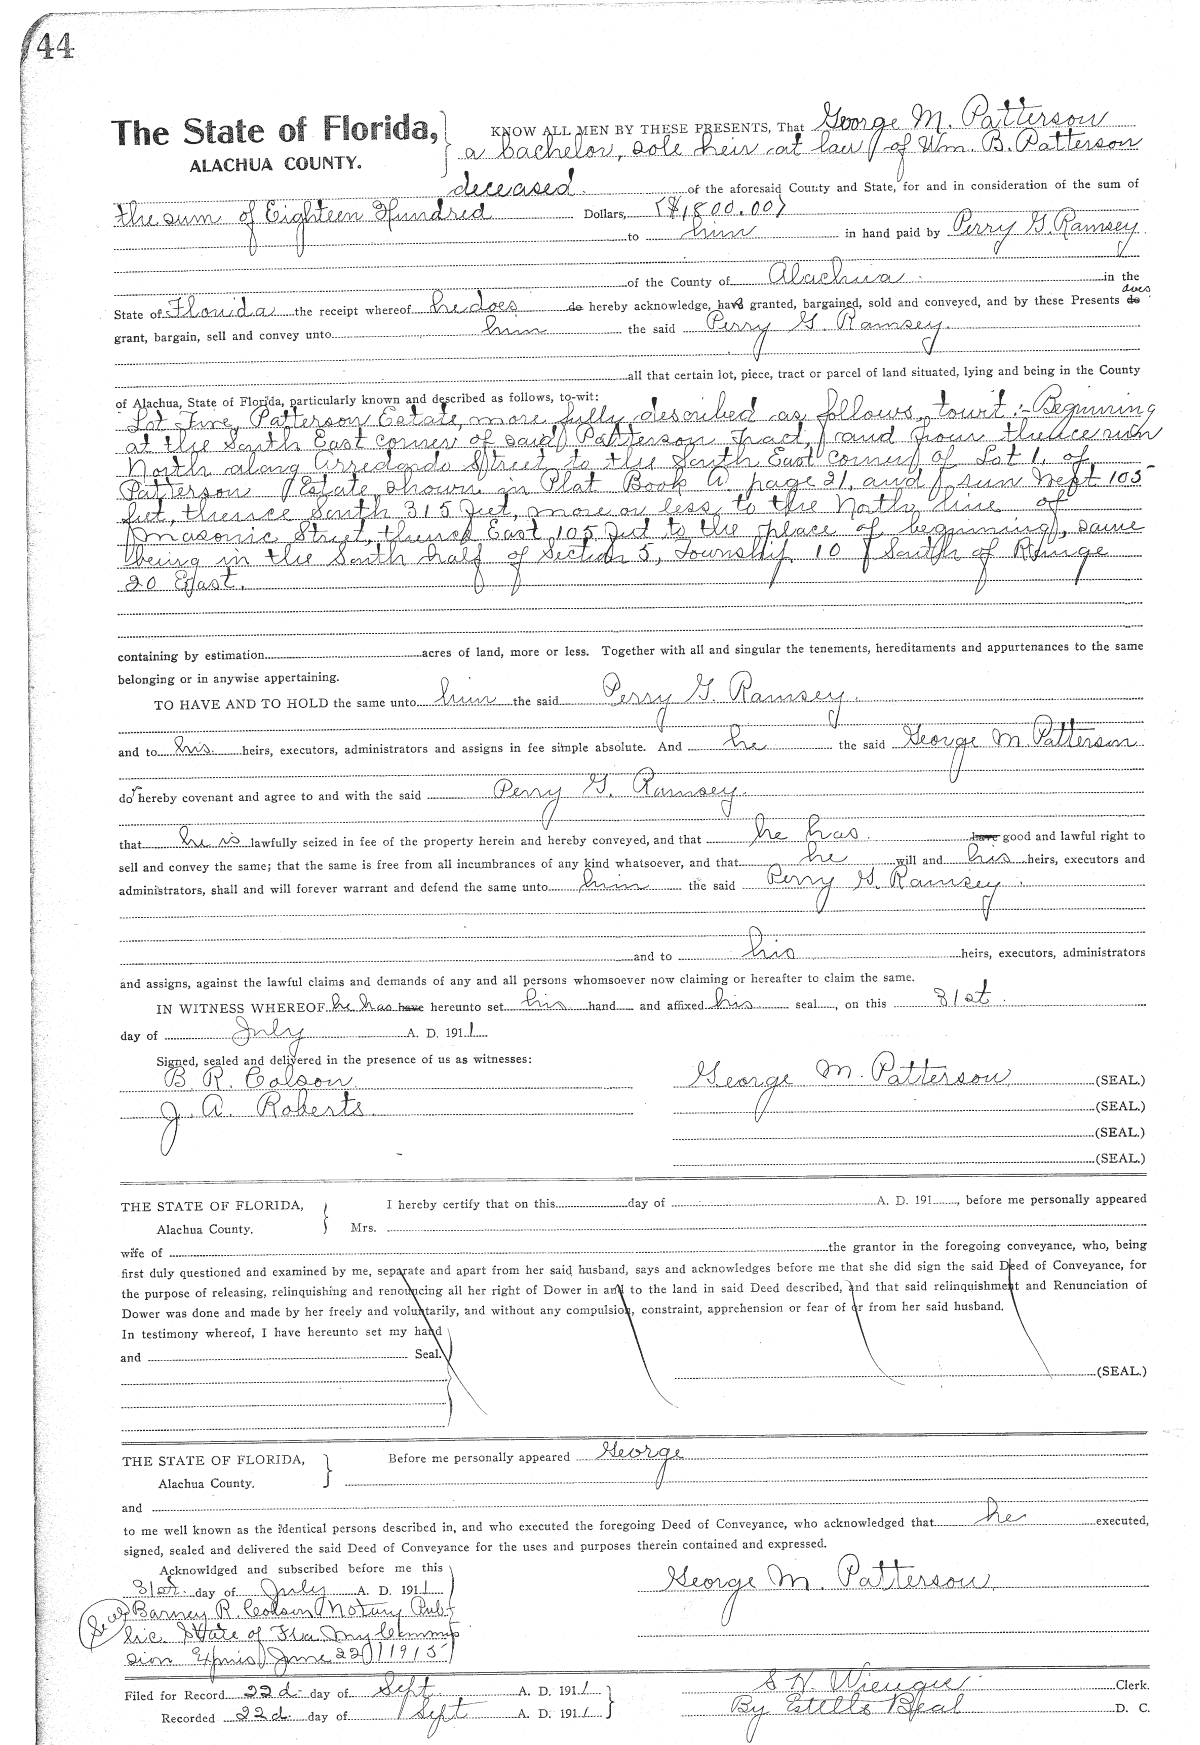 44
The State of Florida, KNOW ALL MEN BY THESE PRESENTS, That George M. Patterson
ALACHUA COUNTY. a bachelor, sole heir at law of Wm. B. Patterson
deceased of the aforesaid County and State, for and in consideration of the sum of
the sum of Eighteen Hundred Dollars, ($1800.00)
to him in hand paid by Perry G. Ramsey
of the County of Alachua in the
State of Florida the receipt whereof he does do hereby acknowledge, have granted, bargained, sold and conveyed, and by these Presents do does
grant, bargain, sell and convey unto him the said Perry G. Ramsey.
all that certain lot, piece, tract or parcel of land situated, lying and being in the County
of Alachua, State of Florida, particularly known and described as follows, to-wit:
Lot Five, Patterson Estate, more fully described as follows, towit:- Beginning
at the South East corner of said Patterson Tract, and from thence run
North along Arredondo Street to the South East corner of Lot 1, of
Patterson Estate, shown in Plat Book A. page 21, and run West 105
feet, thence South 315 feet, more or less, to the North line of
Masonic Street, thence East 105 feet to the place of beginning, same
being in the South half of Section 5, Township 10 South of Range
20 East.
containing by estimation acres of land, more or less. Together with all and singular the tenements, hereditaments and appurtenances to the same
belonging or in anywise appertaining.
TO HAVE AND TO HOLD the same unto him the said Perry G. Ramsey.
and to his heirs, executors, administrators and assigns in fee simple absolute. And he the said George M. Patterson
do hereby covenant and agree to and with the said Perry G. Ramsey.
that he is lawfully seized in fee of the property herein and hereby conveyed, and that he has have good and lawful right to
sell and convey the same; that the same is free from all incumbrances of any kind whatsoever, and that he will and his heirs, executors and
administrators, shall and will forever warrant and defend the same unto him the said Perry G. Ramsey.
and to his heirs, executors, administrators
and assigns, against the lawful claims and demands of any and all persons whomsoever now claiming or hereafter to claim the same.
IN WITNESS WHEREOF he has have hereunto set his hand and affixed his seal, on this 31st
day of July A. D. 1911
Signed, sealed and delivered in the presence of us as witnesses:
B. R. Colson George M. Patterson (SEAL.)
J. A. Roberts (SEAL.)
(SEAL.)
(SEAL.)
THE STATE OF FLORIDA, I hereby certify that on this day of A. D. 191 , before me personally appeared
Alachua County. Mrs.
wife of the grantor in the foregoing conveyance, who, being
first duly questioned and examined by me, separate and apart from her said husband, says and acknowledges before me that she did sign the said Deed of Conveyance, for
the purpose of releasing, relinquishing and renouncing all her right of Dower in and to the land in said Deed described, and that said relinquishment and Renunciation of
Dower was done and made by her freely and voluntarily, and without any compulsion, constraint, apprehension or fear of or from her said husband.
In testimony whereof, I have hereunto set my hand
and Seal.
(SEAL.)
THE STATE OF FLORIDA, Before me personally appeared George
Alachua County.
and
to me well known as the identical persons described in, and who executed the foregoing Deed of Conveyance, who acknowledged that he executed,
signed, sealed and delivered the said Deed of Conveyance for the uses and purposes therein contained and expressed.
Acknowldged and subscribed before me this George M. Patterson
31st day of July A. D. 1911
(Seal) Barney R. Colson Notary Pub-
lic. State of Fla. My Commis
sion Expires June 22 1915
Filed for Record 22d day of Sept A. D. 1911 S. H. Wienges Clerk.
Recorded 22d day of Sept A. D. 1911 By Estelle Beal D. C.